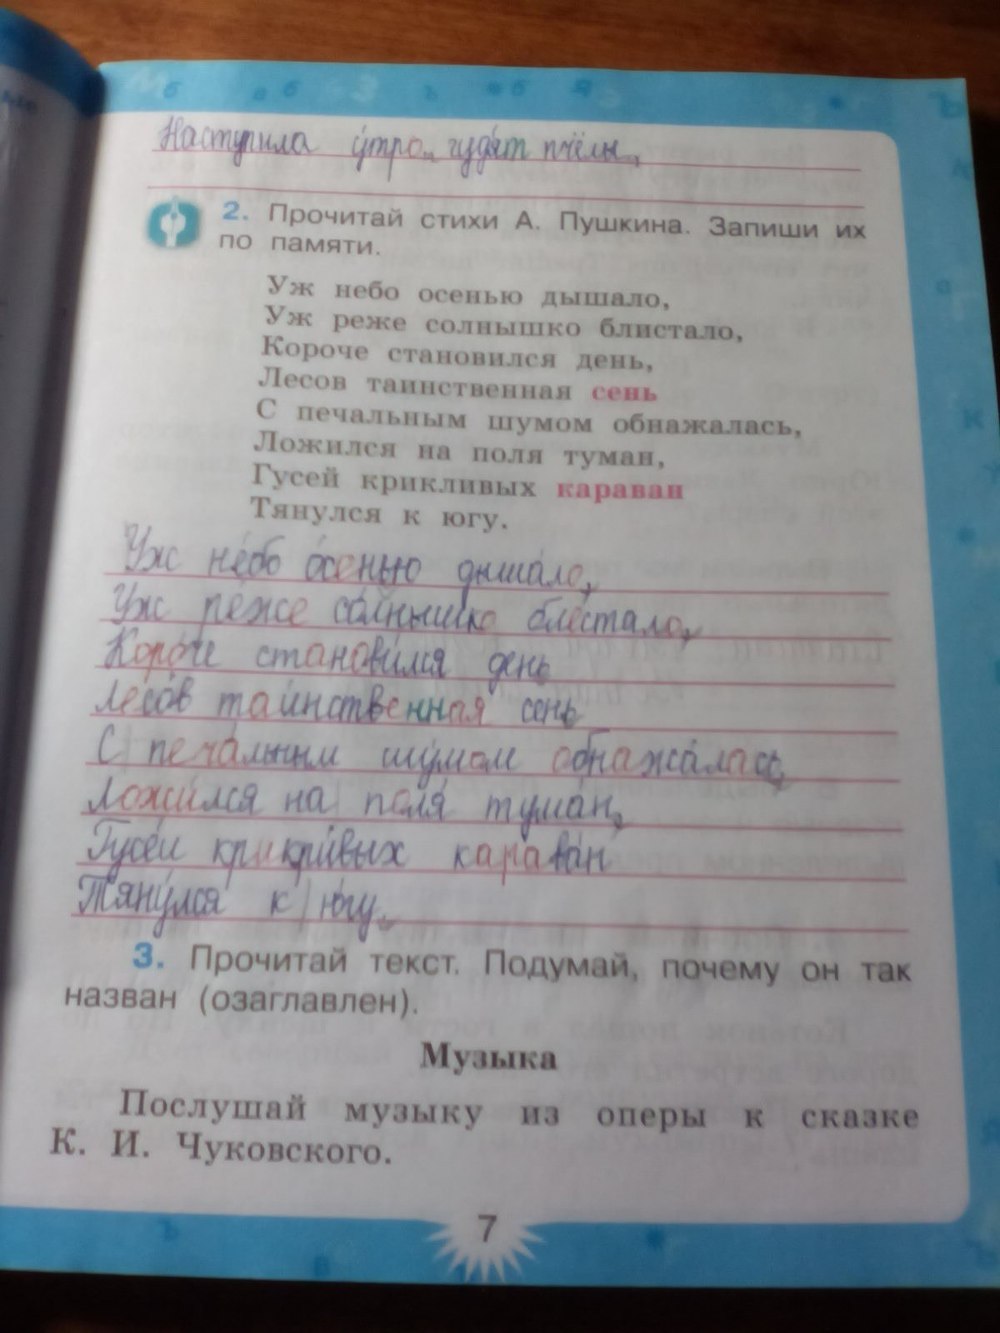 Наступила утро, гудят пчёлы.
2. Прочитай стихи А. Пушкина. Запиши их
по памяти.
Уж небо осенью дышало,
Уж реже солнышко блистало,
Короче становился день,
Лесов таинственная сень
С печальным шумом обнажалась,
Ложился на поля туман,
Гусей крикливых караван
Тянулся к югу.
Уж небо осенью дышало,
Уж реже солнышко блестало,
Короче становился день
Лесов таинственная сень
С печальным шумом обнажалась,
Ложился на поля туман,
Гусей крикривых караван
Тянулся к югу.
3. Прочитай текст. Подумай, почему он так
назван (озаглавлен).
Музыка
Послушай музыку из оперы к сказке
К. И. Чуковского.
7